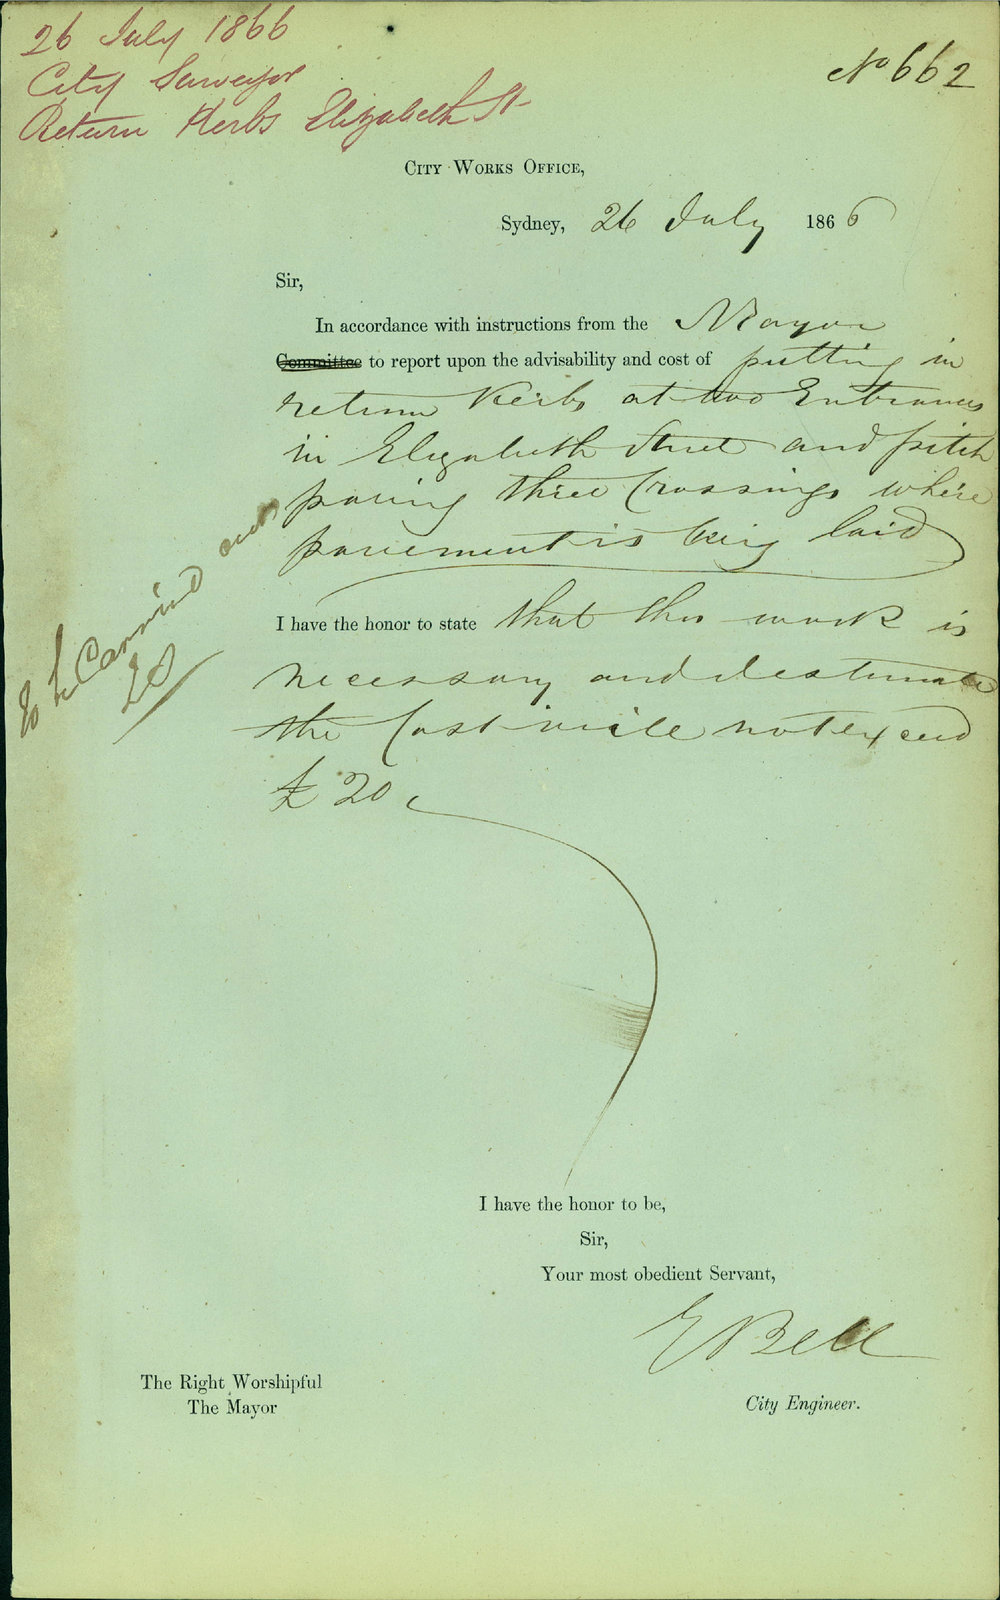 26 July 1866
City Surveyor
Return Kerbs Elizabeth St
No 662
City Works Office,
Sydney, 26 July 1866
Sir,
In accordance with instructions from the Mayor
Committee to report upon the advisability and cost of putting in
return Kerbs at two Entrances
in Elizabeth Street and pitch
paving three Crossings where
pavement is being laid
I have the honor to state that this work is
necessary and I estimate
the Cost will not exceed
£20
I have the honor to be,
Sir,
Your most obedient Servant,
E Bell
The Right Worshipful
The Mayor
City Engineer.